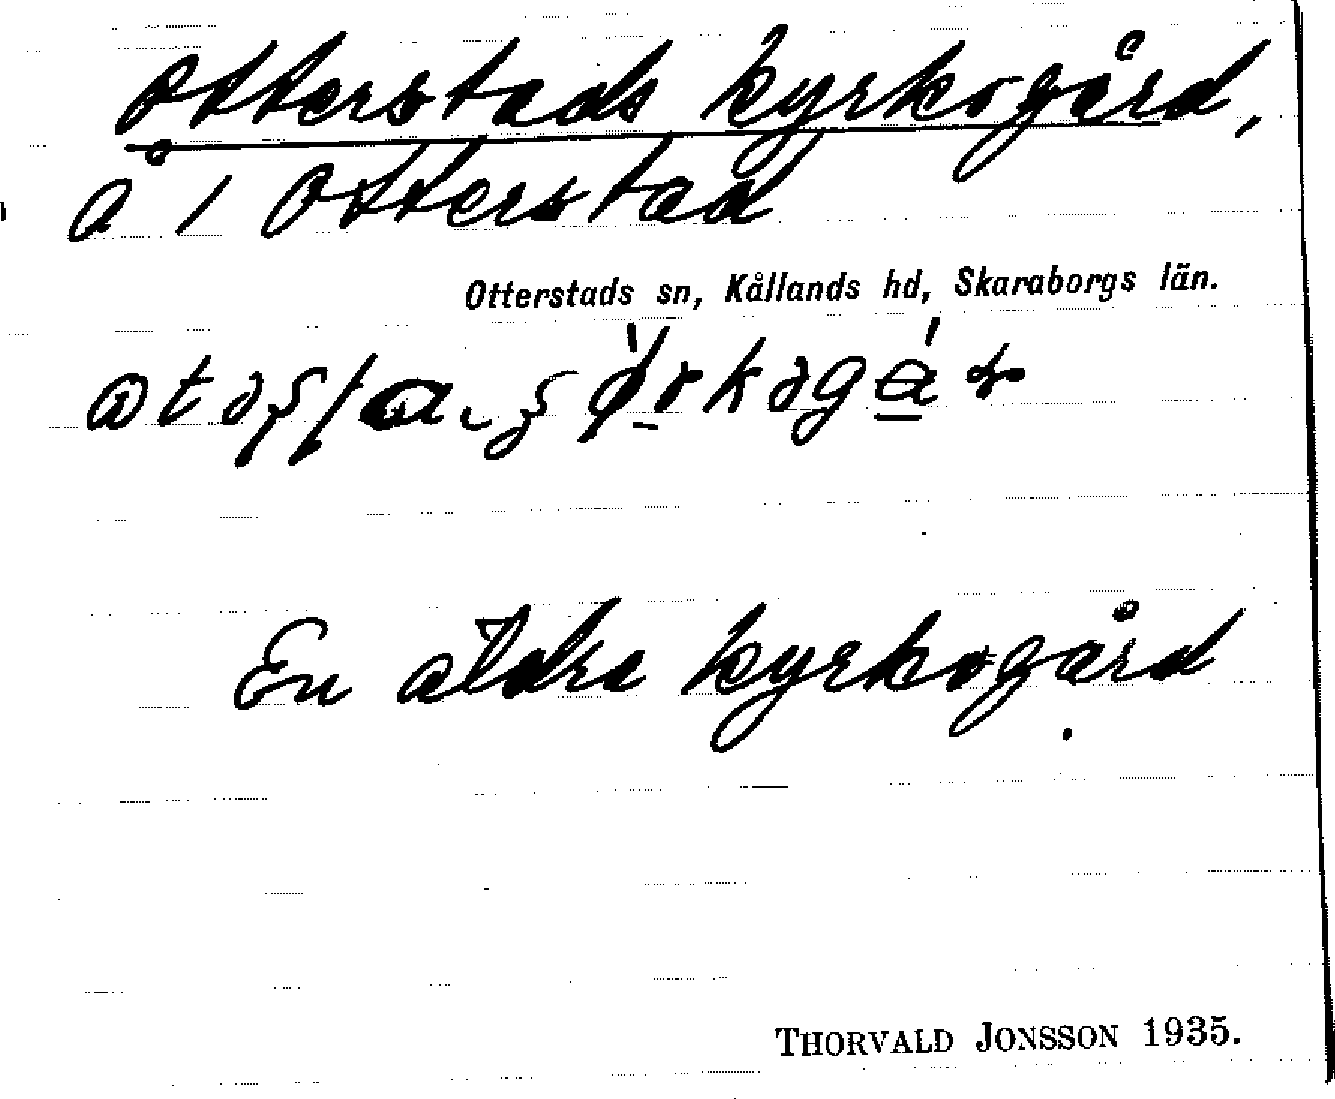 Otterstads kyrkogård,
å 1 Otterstad
Otterstads sn, Kållands hd, Skaraborgs län.
En äldre kyrkogård.
THORVALD JONSSON 1935.